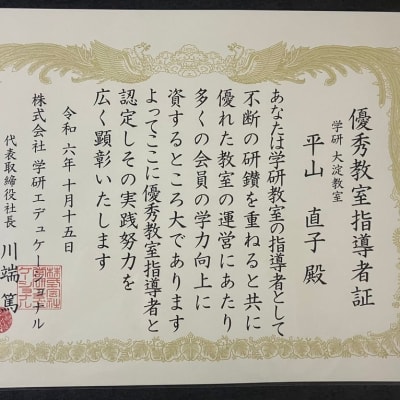 優秀教室指導者証
学研 大淀教室
平山 直子 殿
あなたは学研教室の指導者として
不断の研鑽を重ねると共に
優れた教室の運営にあたり
多くの会員の学力向上に
資するところ大であります
よってここに優秀教室指導者と
認定しその実践努力を
広く顕彰いたします
令和六年十月十五日
株式会社 学研エデュケーショナル
代表取締役社長 川端 篤